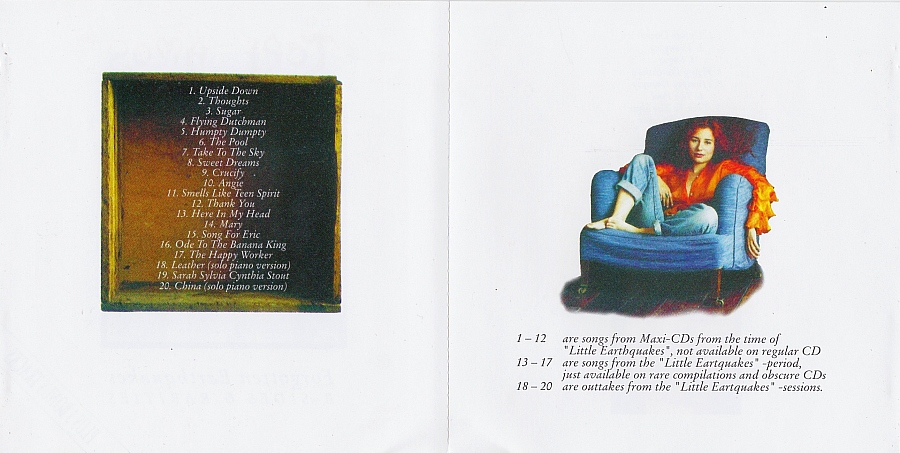 1. Upside Down
2. Thoughts
3. Sugar
4. Flying Dutchman
5. Humpty Dumpty
6. The Pool
7. Take To The Sky
8. Sweet Dreams
9. Crucify
10. Angie
11. Smells Like Teen Spirit
12. Thank You
13. Here In My Head
14. Mary
15. Song For Eric
16. Ode To The Banana King
17. The Happy Worker
18. Leather (solo piano version)
19. Sarah Sylvia Cynthia Stout
20. China (solo piano version)
1 – 12 are songs from Maxi-CDs from the time of
"Little Earthquakes", not available on regular CD
13 – 17 are songs from the "Little Eartquakes" -period,
just available on rare compilations and obscure CDs
18 – 20 are outtakes from the "Little Eartquakes" -sessions.